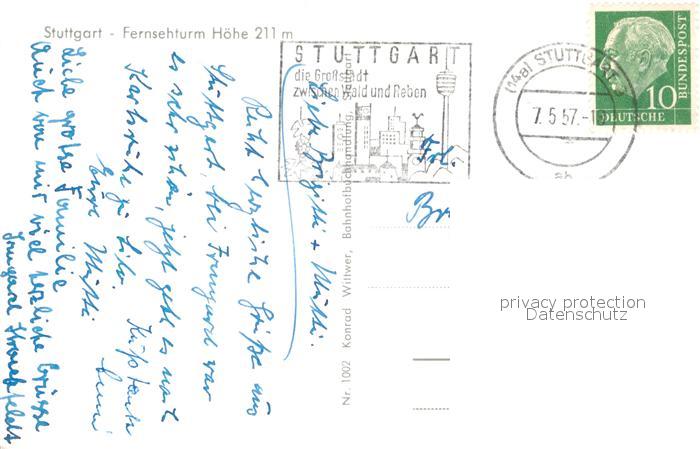 Stuttgart - Fernsehturm Höhe 211 m
STUTTGART
die Großstadt
zwischen Wald und Reben
(14a) STUTTGART
7.5.57.-1
ab
10
DEUTSCHE
BUNDESPOST
Liebe Brigitte + Mutti.
Recht herzliche Grüße aus
Stuttgart, bei Irmgard war
es sehr schön, jetzt geht es nach
Karlsruhe zu Lilo.
Eure Mutti
Liebe große Familie
Auch von mir viel herzliche Grüsse
Irmgard
Frl.
Br
Nr. 1002 Konrad Wittwer, Bahnhofbuchhandlung, Stuttgart
privacy protection
Datenschutz